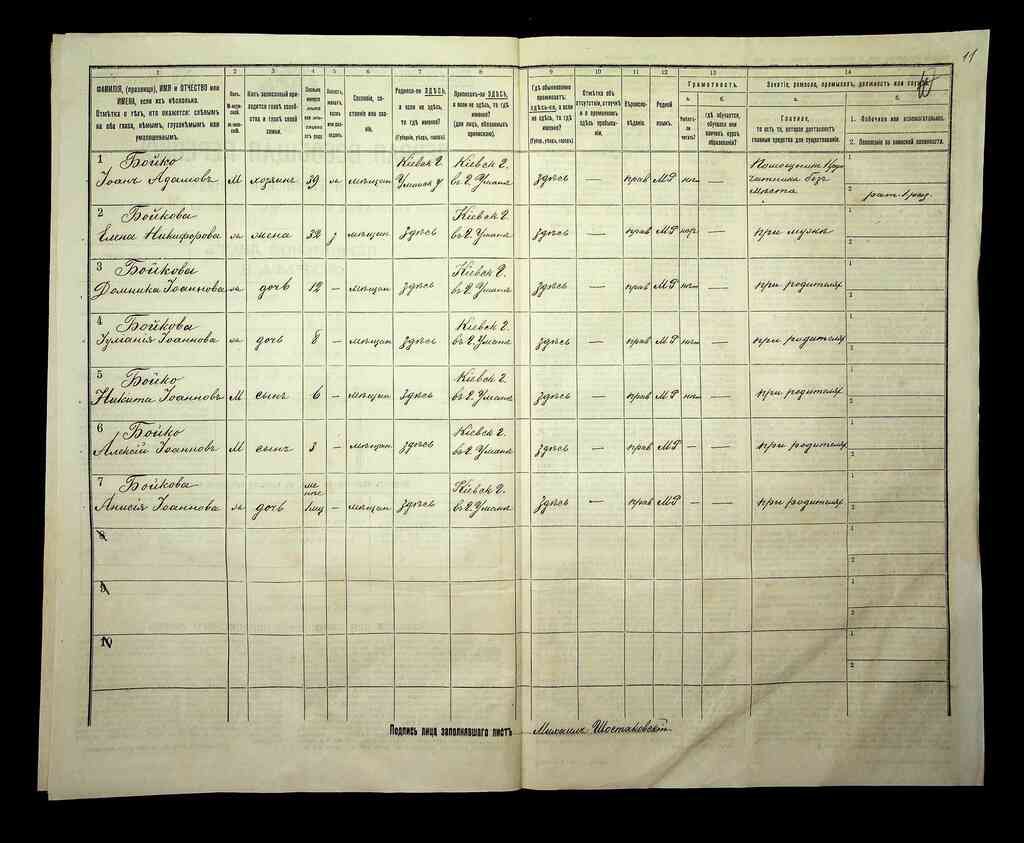 11
1 2 3 4 5 6 7 8 9 10 11 12 13 14
ФАМИЛІЯ, (прозвище), ИМЯ и ОТЧЕСТВО или
ИМЕНА, если ихъ нѣсколько.
Отмѣтка о тѣхъ, кто окажется: слѣпымъ
на оба глаза, нѣмымъ, глухонѣмымъ или
умалишеннымъ.
Полъ.
Какъ записанный при-
ходится главѣ хозяй-
ства и главѣ своей
семьи.
Сословіе, со-
стояніе или зва-
ніе.
Родился-ли ЗДѢСЬ,
а если не здѣсь,
то гдѣ именно?
(Губернія, уѣздъ, городъ).
Приписанъ-ли ЗДѢСЬ,
а если не здѣсь, то гдѣ
именно?
(для лицъ, обязанныхъ
припискою).
Гдѣ обыкновенно
проживаетъ:
здѣсь-ли, а если
не здѣсь, то гдѣ
именно?
(Губер., уѣздъ, городъ).
Отмѣтка объ
отсутствіи, отлучкѣ
и о временномъ
здѣсь пребыва-
ніи.
Вѣроиспо-
вѣданіе.
Родной
языкъ.
Грамотность.
а.
Умѣетъ-ли
читать?
б.
гдѣ обучается,
обучался или
кончилъ курсъ
образованія?
Занятіе, ремесло, промыселъ, должность или служба.
а.
Главное,
то есть то, которое доставляетъ
главныя средства для существованія.
б.
1. Побочное или вспомогательное.
2. Положеніе по воинской повинности.
1 Бойко
Іоанъ Адамовъ М хозяинъ 39 мѣщан Кіевск г. Уманск у Кіевск г. въ г. Умань здѣсь — прав МР — Помощникъ безъ мѣста 1 2 рат. 1 раз.
2 Бойкова
Елена Никифорова жена 32 мѣщан здѣсь Кіевск г. въ г. Умань здѣсь — прав МР — при мужѣ 1 2
3 Бойкова
Домника Іоаннова дочь 12 — мѣщан здѣсь Кіевск г. въ г. Умань здѣсь — прав МР — при родителях 1 2
4 Бойкова
Іоаннова дочь 8 — мѣщан здѣсь Кіевск г. въ г. Умань здѣсь — прав МР — при родителях 1 2
5 Бойко
Никита Іоанновъ М сынъ 6 — мѣщан здѣсь Кіевск г. въ г. Умань здѣсь — прав МР — при родителях 1 2
6 Бойко
Алексій Іоанновъ М сынъ 3 — мѣщан здѣсь Кіевск г. въ г. Умань здѣсь — прав МР — — при родителях 1 2
7 Бойкова
Анисія Іоаннова дочь 1 мѣщан здѣсь Кіевск г. въ г. Умань здѣсь — прав МР — — при родителях 1 2
8 1 2
9 1 2
10 1 2
Подпись лица заполнявшаго листъ Михаилъ Шостаковскій